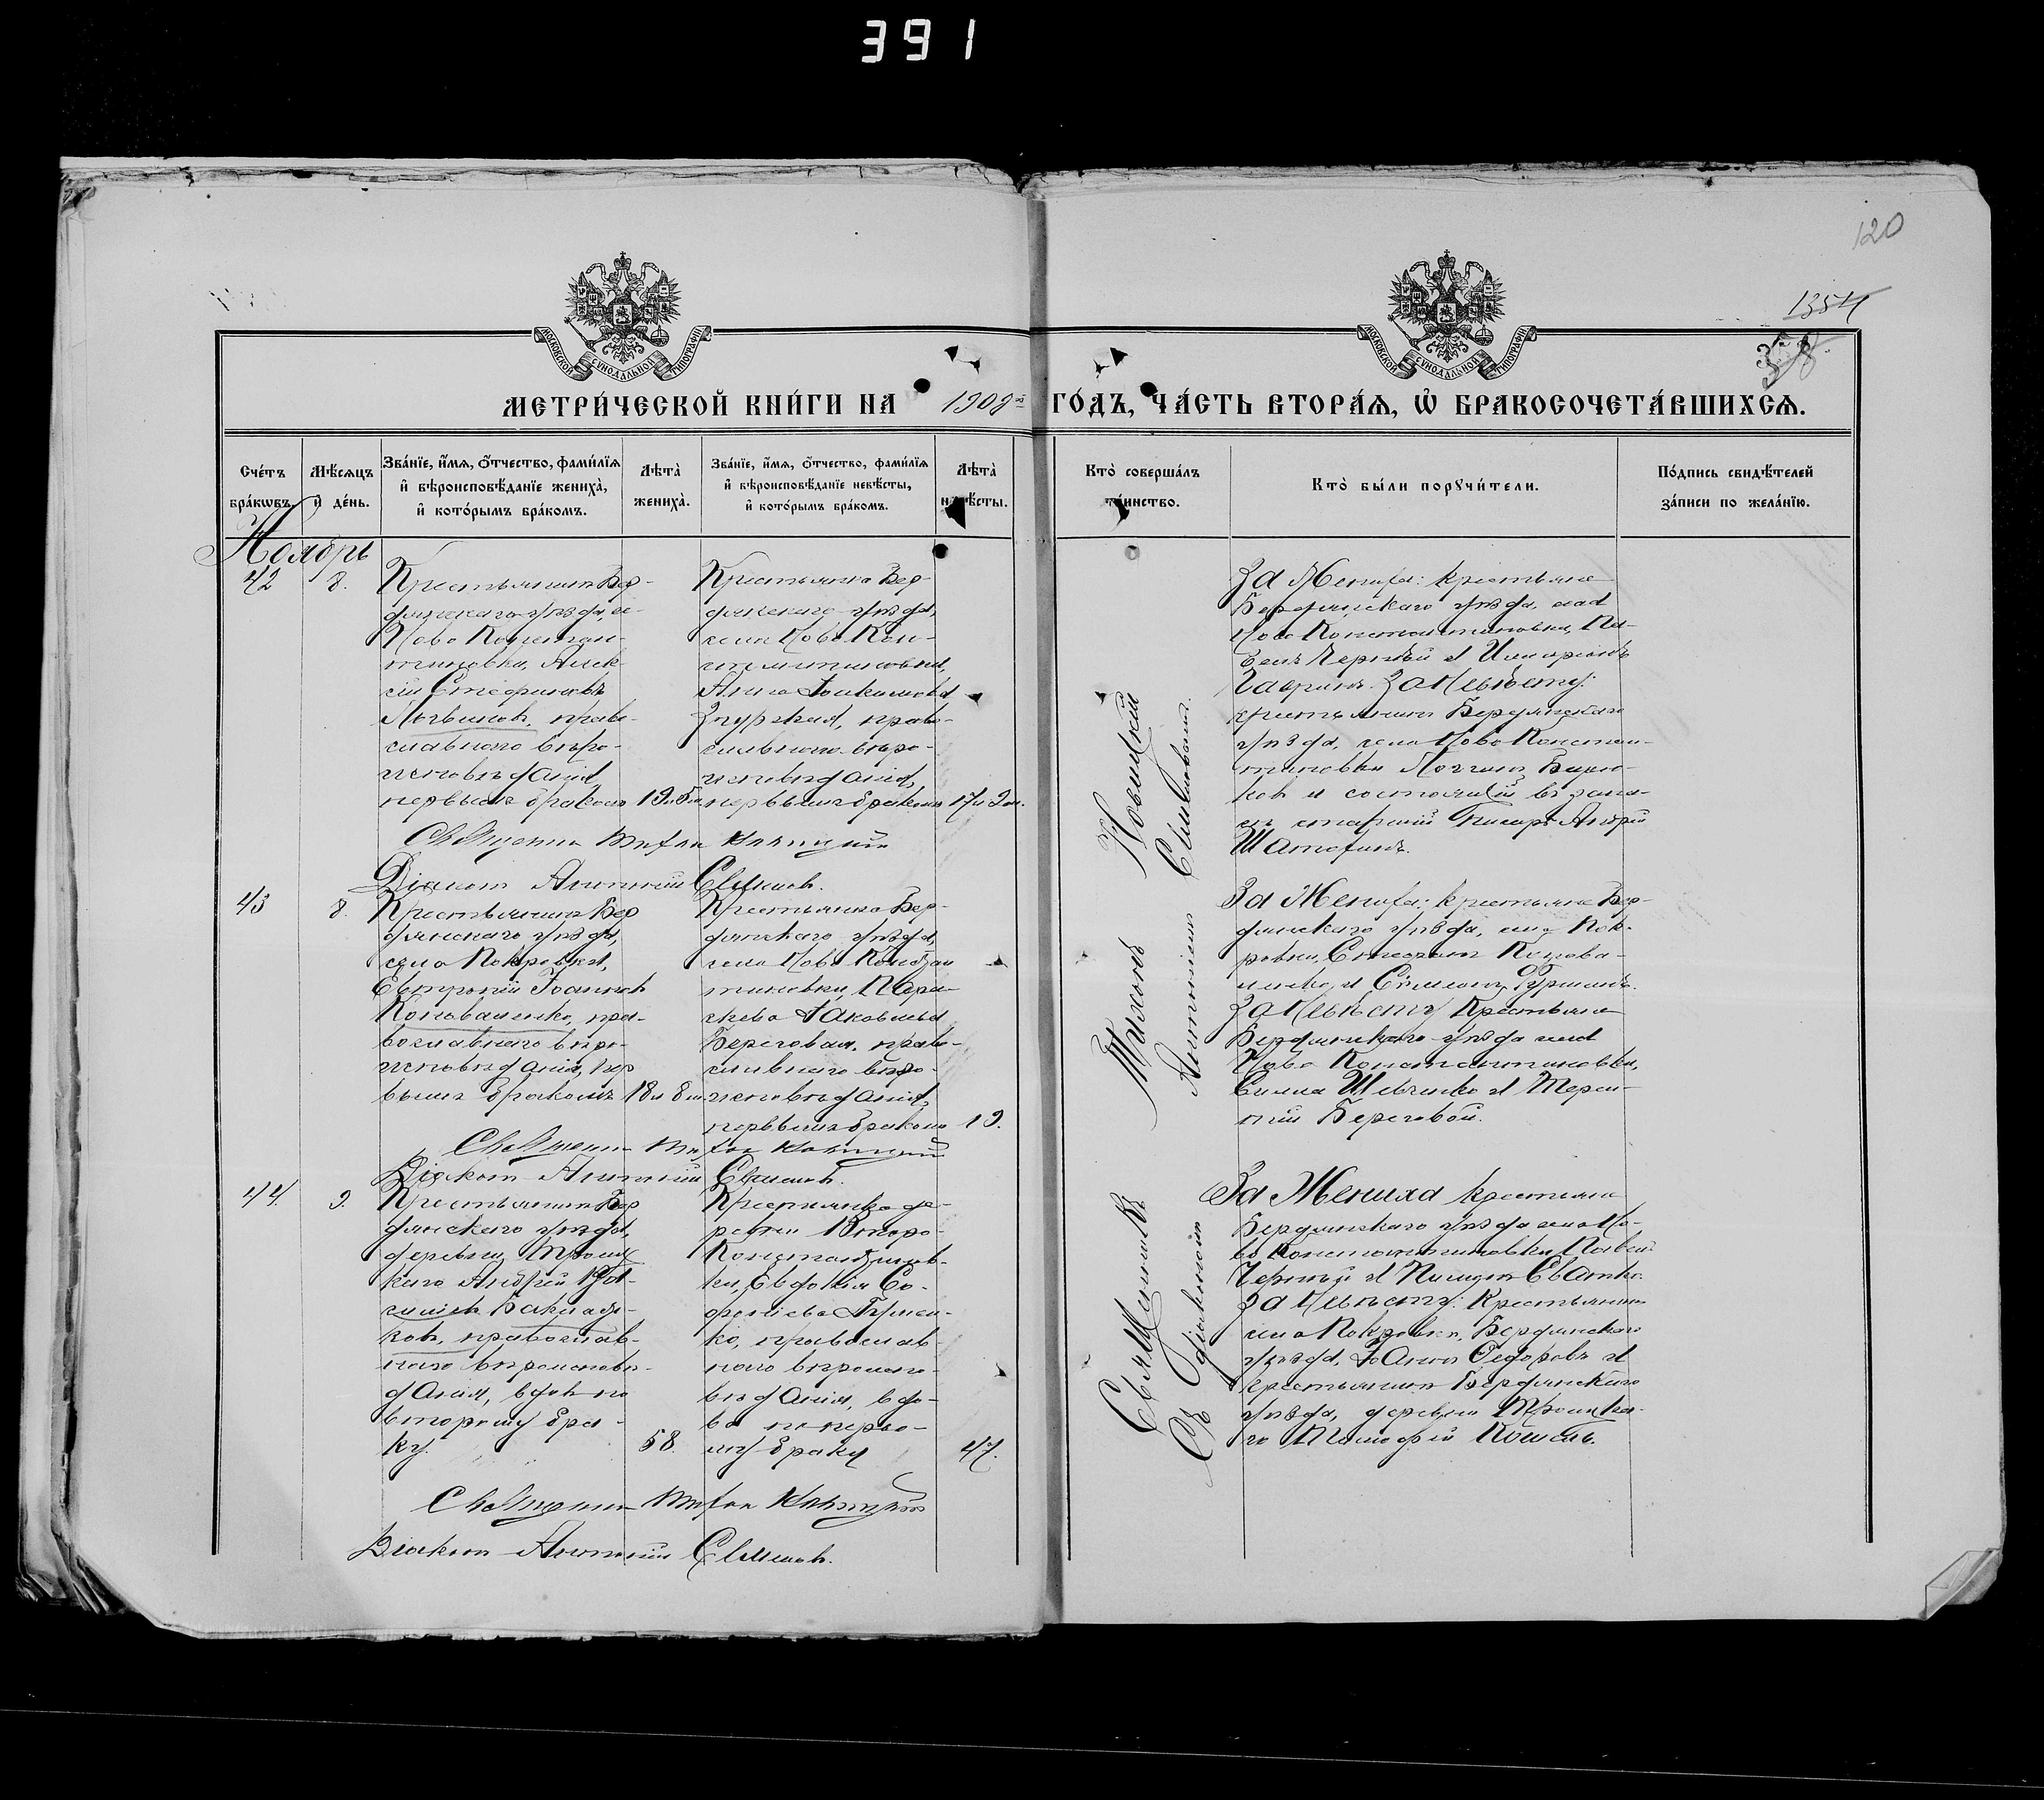 391
120
1354
358.
МОСКОВСКОЙ СУНОДАЛЬНОЙ ТИПОГРАФІИ
МОСКОВСКОЙ СУНОДАЛЬНОЙ ТИПОГРАФІИ
МЕТРИ́ЧЕСКОЙ КНИ́ГИ НА 1909й ГО́ДЪ, ЧА́СТЬ ВТОРА́Я, Ѡ҆ БРАКОСОЧЕТА́ВШИХСЯ.
Сче́тъ бра́кѡвъ.
Мѣ́сяцъ и҆ де́нь.
Зва́нїе, и҆́мя, о҆́тчество, фами́лїя
и҆ вѣроисповѣ́данїе жениха̀,
и҆ кото́рымъ бра́комъ.
Лѣта̀ жениха̀.
Зва́нїе, и҆́мя, о҆́тчество, фами́лїя
и҆ вѣроисповѣ́данїе невѣ́сты,
и҆ кото́рымъ бра́комъ.
Лѣта̀ невѣ́сты.
Кто̀ соверша́лъ та́инство.
Кто̀ бы́ли порꙋчи́тели.
По́дпись свидѣ́телей за́писи по жела́нїю.
Ноябрь
42
8.
Крестьянинъ Бер-
дянскаго уѣзда, с.
Ново Констан-
тиновки, Алек-
сій Стефановъ
Логвиновъ, право-
славнаго вѣро-
исповѣданія,
первымъ бракомъ
Крестьянка Бер-
дянскаго уѣзда,
села Ново Кон-
стантиновки,
Анна Іоакимова
Згурская, право-
славнаго вѣро-
исповѣданія,
первымъ бракомъ
За Жениха: крестьяне
Бердянскаго уѣзда, села
Ново Константиновки, Па-
велъ Черный и Иларіонъ
Гавринъ. За Невѣсту:
крестьянинъ Бердянскаго
уѣзда, села Ново Констан-
тиновки Логгинъ Бирю-
ковъ и состоящій въ запа-
сѣ старшій писарь Андрей
Шатохинъ.
Священникъ Тихонъ Новицкій
Діаконъ Антоній Слинковъ.
43
8.
Крестьянинъ Бер
дянскаго уѣзда,
села Покровки,
Евтропій Іоанновъ
Коноваленко, пра-
вославнаго вѣро-
исповѣданія, пер
вымъ бракомъ
18 л 8 м.
Крестьянка Бер-
дянскаго уѣзда,
села Ново Констан
тиновки, Пара-
скева Іаковлева
Береговая, право-
славнаго вѣро-
исповѣданія,
первымъ бракомъ
19.
За Жениха: крестьяне Бер-
дянскаго уѣзда, села Пок-
ровки, Стефанъ Конова-
ленко и Симеонъ Гуржій.
За Невѣсту Крестьяне
Бердянскаго уѣзда села
Ново Константиновки,
Сила Шевченко и Терен-
тій Береговой.
Священникъ Тихонъ Новицкій
Діаконъ Антоній Слинковъ.
44.
9.
Крестьянинъ Бер
дянскаго уѣзда,
деревни Троиц
каго Андрей
Баклаж-
ковъ, православ-
наго вѣроисповѣ-
данія, вдовъ по
второму бра-
ку.
58.
Крестьянка де-
ревни Второ-
Константинов-
ки, Евдокія Со-
фоніева
ко, православ-
наго вѣроиспо-
вѣданія, вдо-
ва по перво-
му браку
47.
За Жениха крестьяне
Бердянскаго уѣзда села Но-
во Константиновки Павелъ
Черный и Пименъ Сватко.
За Невѣсту: Крестьянинъ
села Покровки, Бердянскаго
уѣзда, Іоаннъ Федоровъ и
крестьянинъ Бердянскаго
уѣзда, деревни Троицка-
го Тимофей Кошель.
Священникъ Тихонъ Новицкій
Діаконъ Антоній Слинковъ.
Священникъ Тихонъ Новицкій
Съ діакономъ Антоніемъ Слинковымъ.